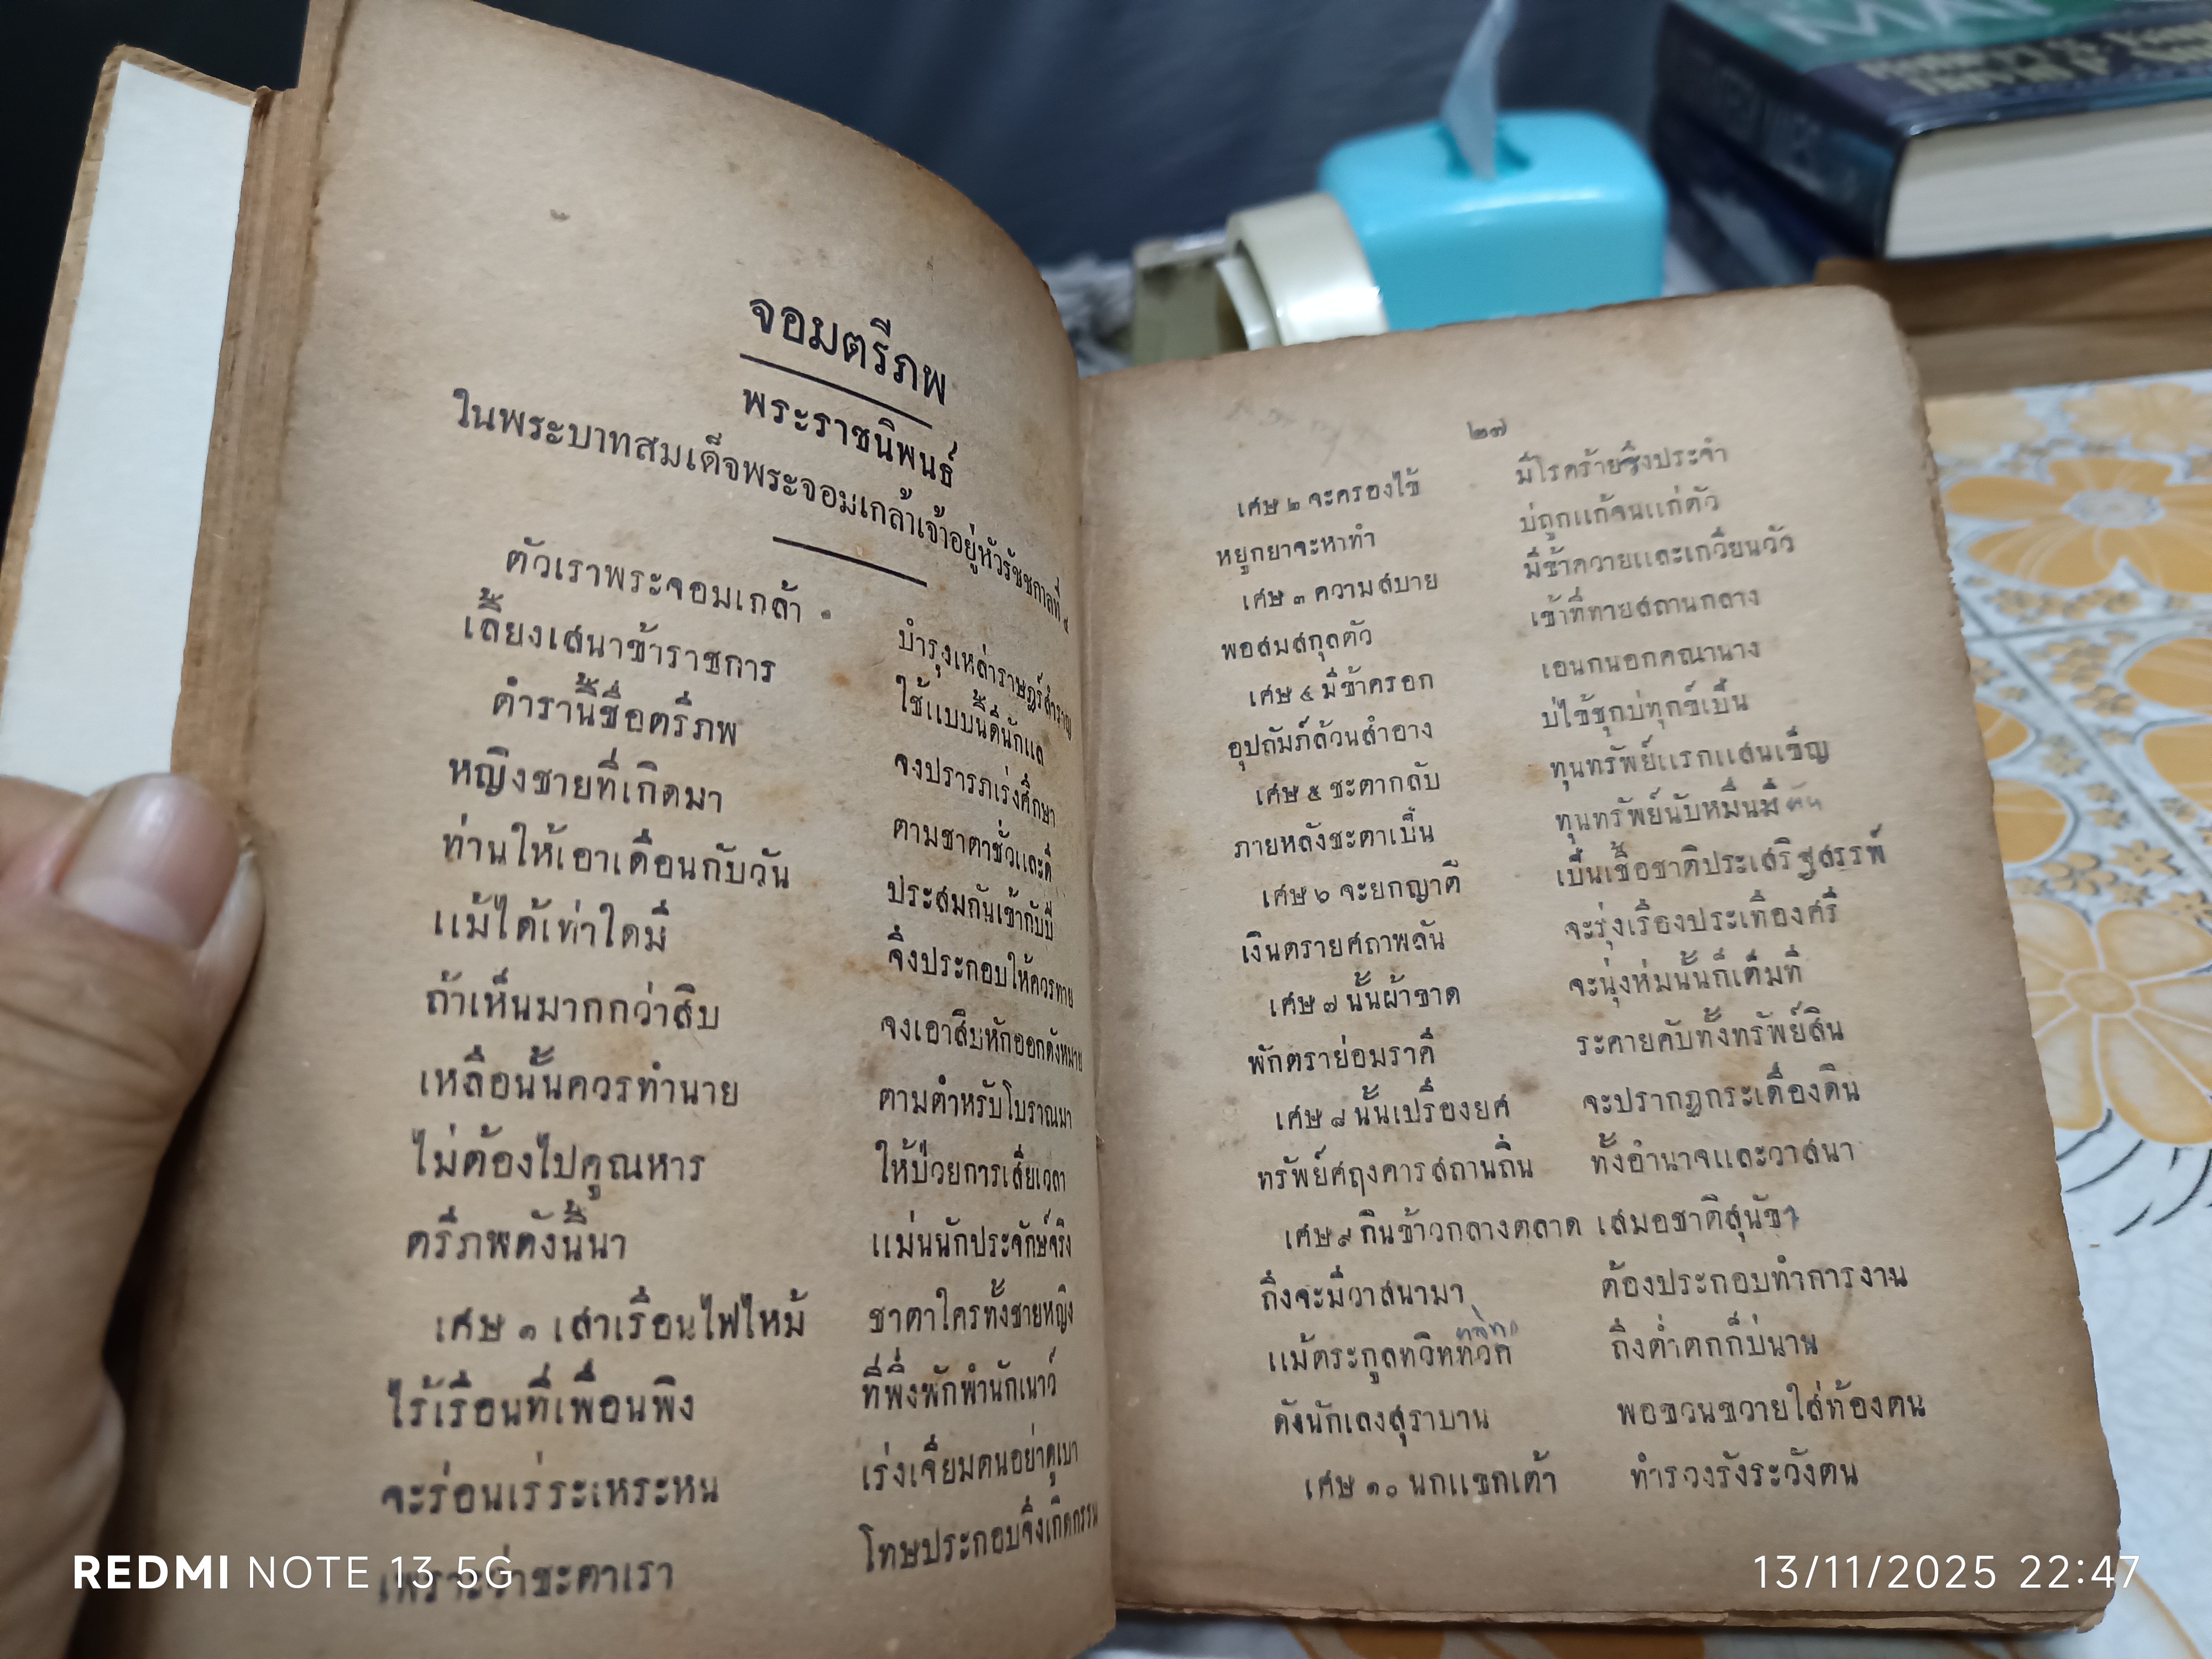 จอมตรีภพ
พระราชนิพนธ์
ในพระบาทสมเด็จพระจอมเกล้าเจ้าอยู่หัวรัชชกาลที่ ๔
ตัวเราพระจอมเกล้า บำรุงเหล่าราษฎร์สำราญ
เลี้ยงเสนาข้าราชการ ใช้แบบนี้ดีนักแล
ตำรานี้ชื่อตรีภพ จงปรารภเร่งศึกษา
หญิงชายที่เกิดมา ตามชาตาชั่วและดี
ท่านให้เอาเดือนกับวัน ประสมกันเข้ากับปี
แม้ได้เท่าใดมี จึ่งประกอบให้ควรทาย
ถ้าเห็นมากกว่าสิบ จงเอาสิบหักออกดังหมาย
เหลือนั้นควรทำนาย ตามตำหรับโบราณมา
ไม่ต้องไปคูณหาร ให้ป่วยการเสียเวลา
ตรีภพดังนี้นา แม่นนักประจักษ์จริง
เศษ ๑ เสาเรือนไฟไหม้ ชาตาใครทั้งชายหญิง
ไร้เรือนที่เพื่อนพิง ที่พึ่งพักพำนักเนาว์
จะร่อนเร่ระเหระหน เร่งเจียมตนอย่าดูเบา
เพราะว่าชะตาเรา โทษประกอบจึ่งเกิดกรรม
๒๗
เศษ ๒ จะครองไข้ มีโรคร้ายซึ่งประจำ
หยูกยาจะหาทำ บ่ถูกแก้จนแก่ตัว
เศษ ๓ ความสบาย มีข้าควายและเกวียนวัว
พอสมสกุลตัว เข้าที่ทายสถานกลาง
เศษ ๔ มีข้าครอก เอนกนอกคณานาง
อุปถัมภ์ล้วนสำอาง บ่ไข้ชุกบ่ทุกข์เป็น
เศษ ๕ ชะตากลับ ทุนทรัพย์แรกแสนเข็ญ
ภายหลังชะตาเป็น ทุนทรัพย์นับหมื่นมี
เศษ ๖ จะยกญาติ เป็นเชื้อชาติประเสริฐสรรพ์
เงินตรายศถาพลัน จะรุ่งเรืองประเทืองศรี
เศษ ๗ นั้นผ้าขาด จะนุ่งห่มนั้นก็เต็มที
พักตราย่อมราคี ระคายคับทั้งทรัพย์สิน
เศษ ๘ นั้นเปรื่องยศ จะปรากฏกระเดื่องดิน
ทรัพย์ศฤงคารสถานถิ่น ทั้งอำนาจและวาสนา
เศษ ๙ กินข้าวกลางตลาด เสมอชาติสุนัขา
ถึงจะมีวาสนามา ต้องประกอบทำการงาน
แม้ตระกูลทวิททวิค ถึงต่ำตกก็บ่นาน
ดังนักเลงสุราบาน พอขวนขวายใส่ท้องตน
เศษ ๑๐ นกแขกเต้า ทำรวงรังระวังตน
REDMI NOTE 13 5G
13/11/2025 22:47